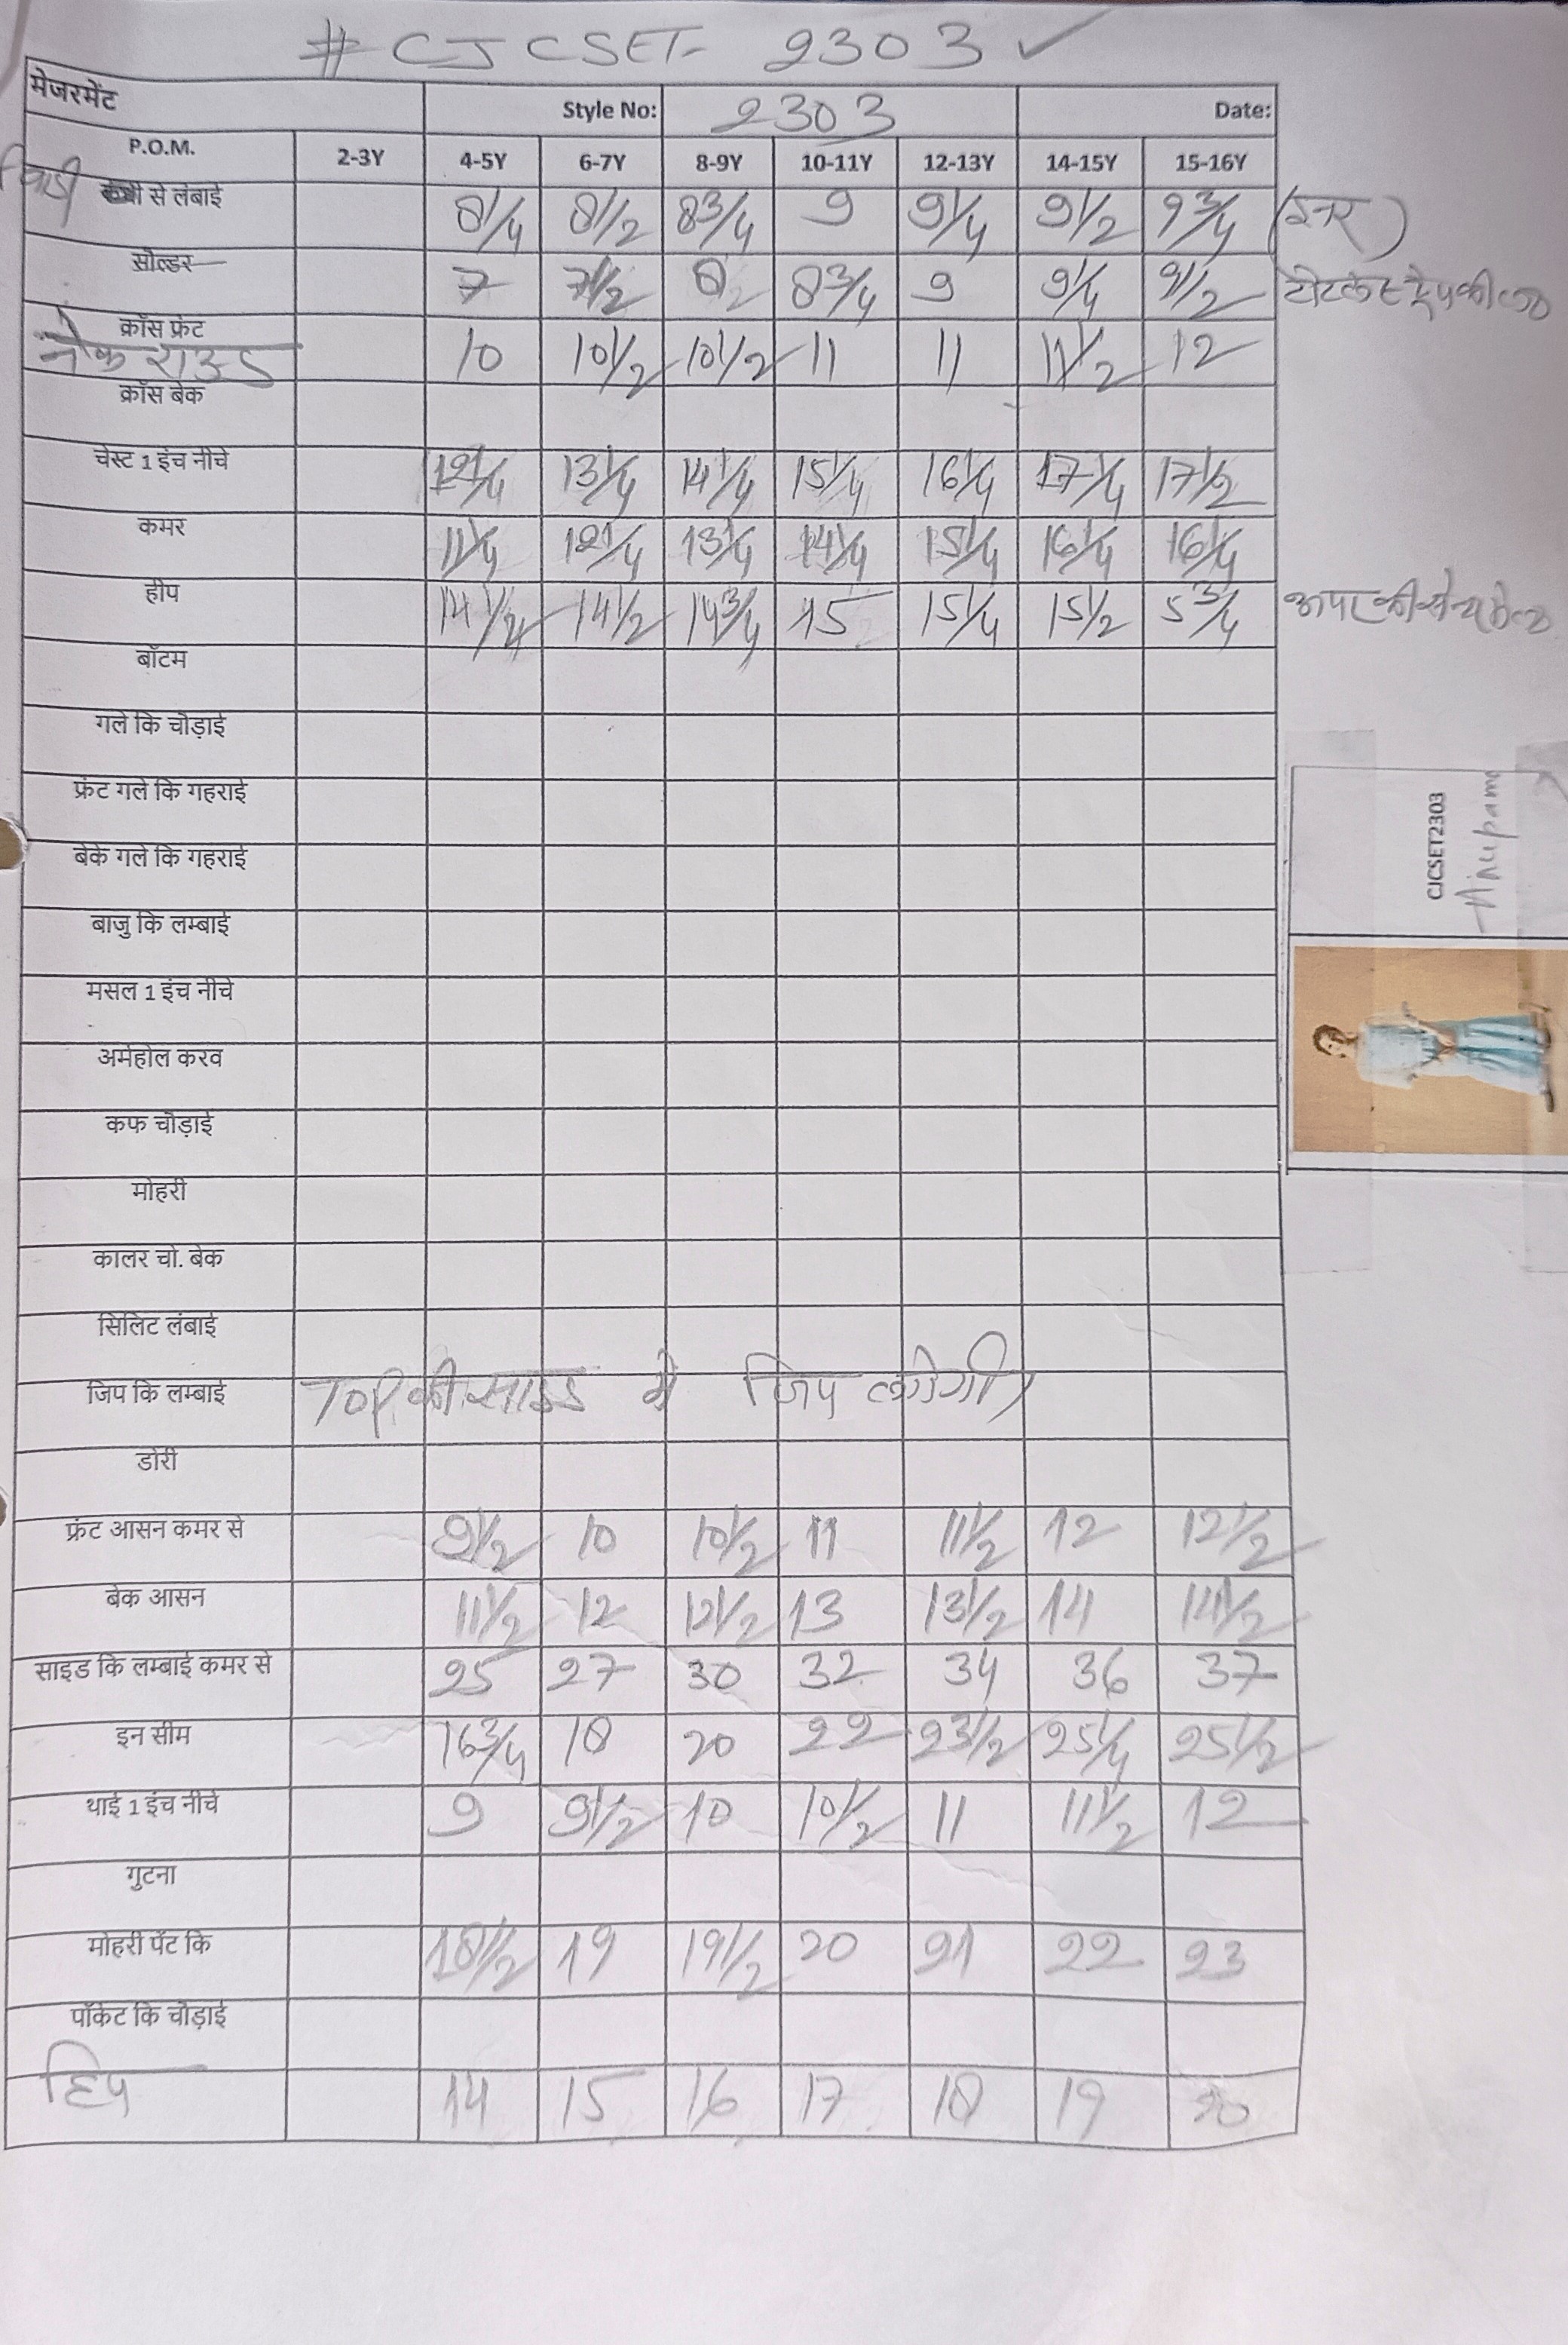 # CJCSET- 2303 ✓
मेजरमेंट Style No: 2303 Date:
P.O.M. 2-3Y 4-5Y 6-7Y 8-9Y 10-11Y 12-13Y 14-15Y 15-16Y
से लंबाई 8 1/4 8 1/2 8 3/4 9 9 1/4 9 1/2 9 3/4 (इनर)
सोल्डर 7 7 1/2 8 8 3/4 9 9 1/4 9 1/2
क्रॉस फ्रंट
नेक राउंड 10 10 1/2 10 1/2 11 11 11 1/2 12
क्रॉस बेक
चेस्ट 1 इंच नीचे 12 1/4 13 1/4 14 1/4 15 1/4 16 1/4 17 1/4 17 1/2
कमर 11 1/4 12 1/4 13 1/4 14 1/4 15 1/4 16 1/4 16 1/4
हीप 14 1/4 14 1/2 14 3/4 15 15 1/4 15 1/2 5 3/4
बॉटम
गले कि चौड़ाई
फ्रंट गले कि गहराई
बेके गले कि गहराई
बाजु कि लम्बाई
मसल 1 इंच नीचे
अर्महोल करव
कफ चौड़ाई
मोहरी
कालर चो. बेक
सिलिट लंबाई
जिप कि लम्बाई TOP की साइड मे जिप लगेगी
डोरी
फ्रंट आसन कमर से 9 1/2 10 10 1/2 11 11 1/2 12 12 1/2
बेक आसन 11 1/2 12 12 1/2 13 13 1/2 14 14 1/2
साइड कि लम्बाई कमर से 25 27 30 32 34 36 37
इन सीम 16 3/4 18 20 22 23 1/2 25 1/4 25 1/2
थाई 1 इंच नीचे 9 9 1/2 10 10 1/2 11 11 1/2 12
गुटना
मोहरी पॅट कि 18 1/2 19 19 1/2 20 21 22 23
पॉकेट कि चौड़ाई
हिप 14 15 16 17 18 19 20
CJCSET2303
Anupam